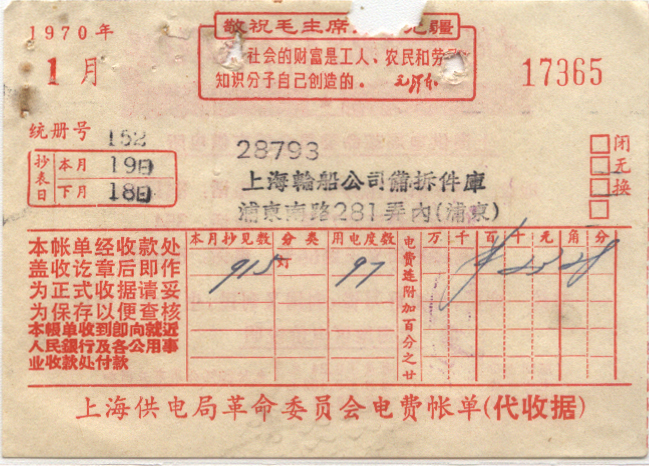 1970年
1月
敬祝毛主席 无疆
社会的财富是工人、农民和劳动
知识分子自己创造的。 毛泽东
17365
统册号 152
抄表日
本月 19日
下月 18日
28793
上海輪船公司備拆件庫
浦東南路281弄內(浦東)
闭
无
换
本帐单经收款处
盖收讫章后即作
为正式收据请妥
为保存以便查核
本帳单收到卽向就近
人民銀行及各公用事
业收款处付款
本月抄见数 分类 用电度数 电费连附加百分之廿 万千百十元角分
915 灯 97 ¥ 25 28
上海供电局革命委员会电费帐单(代收据)